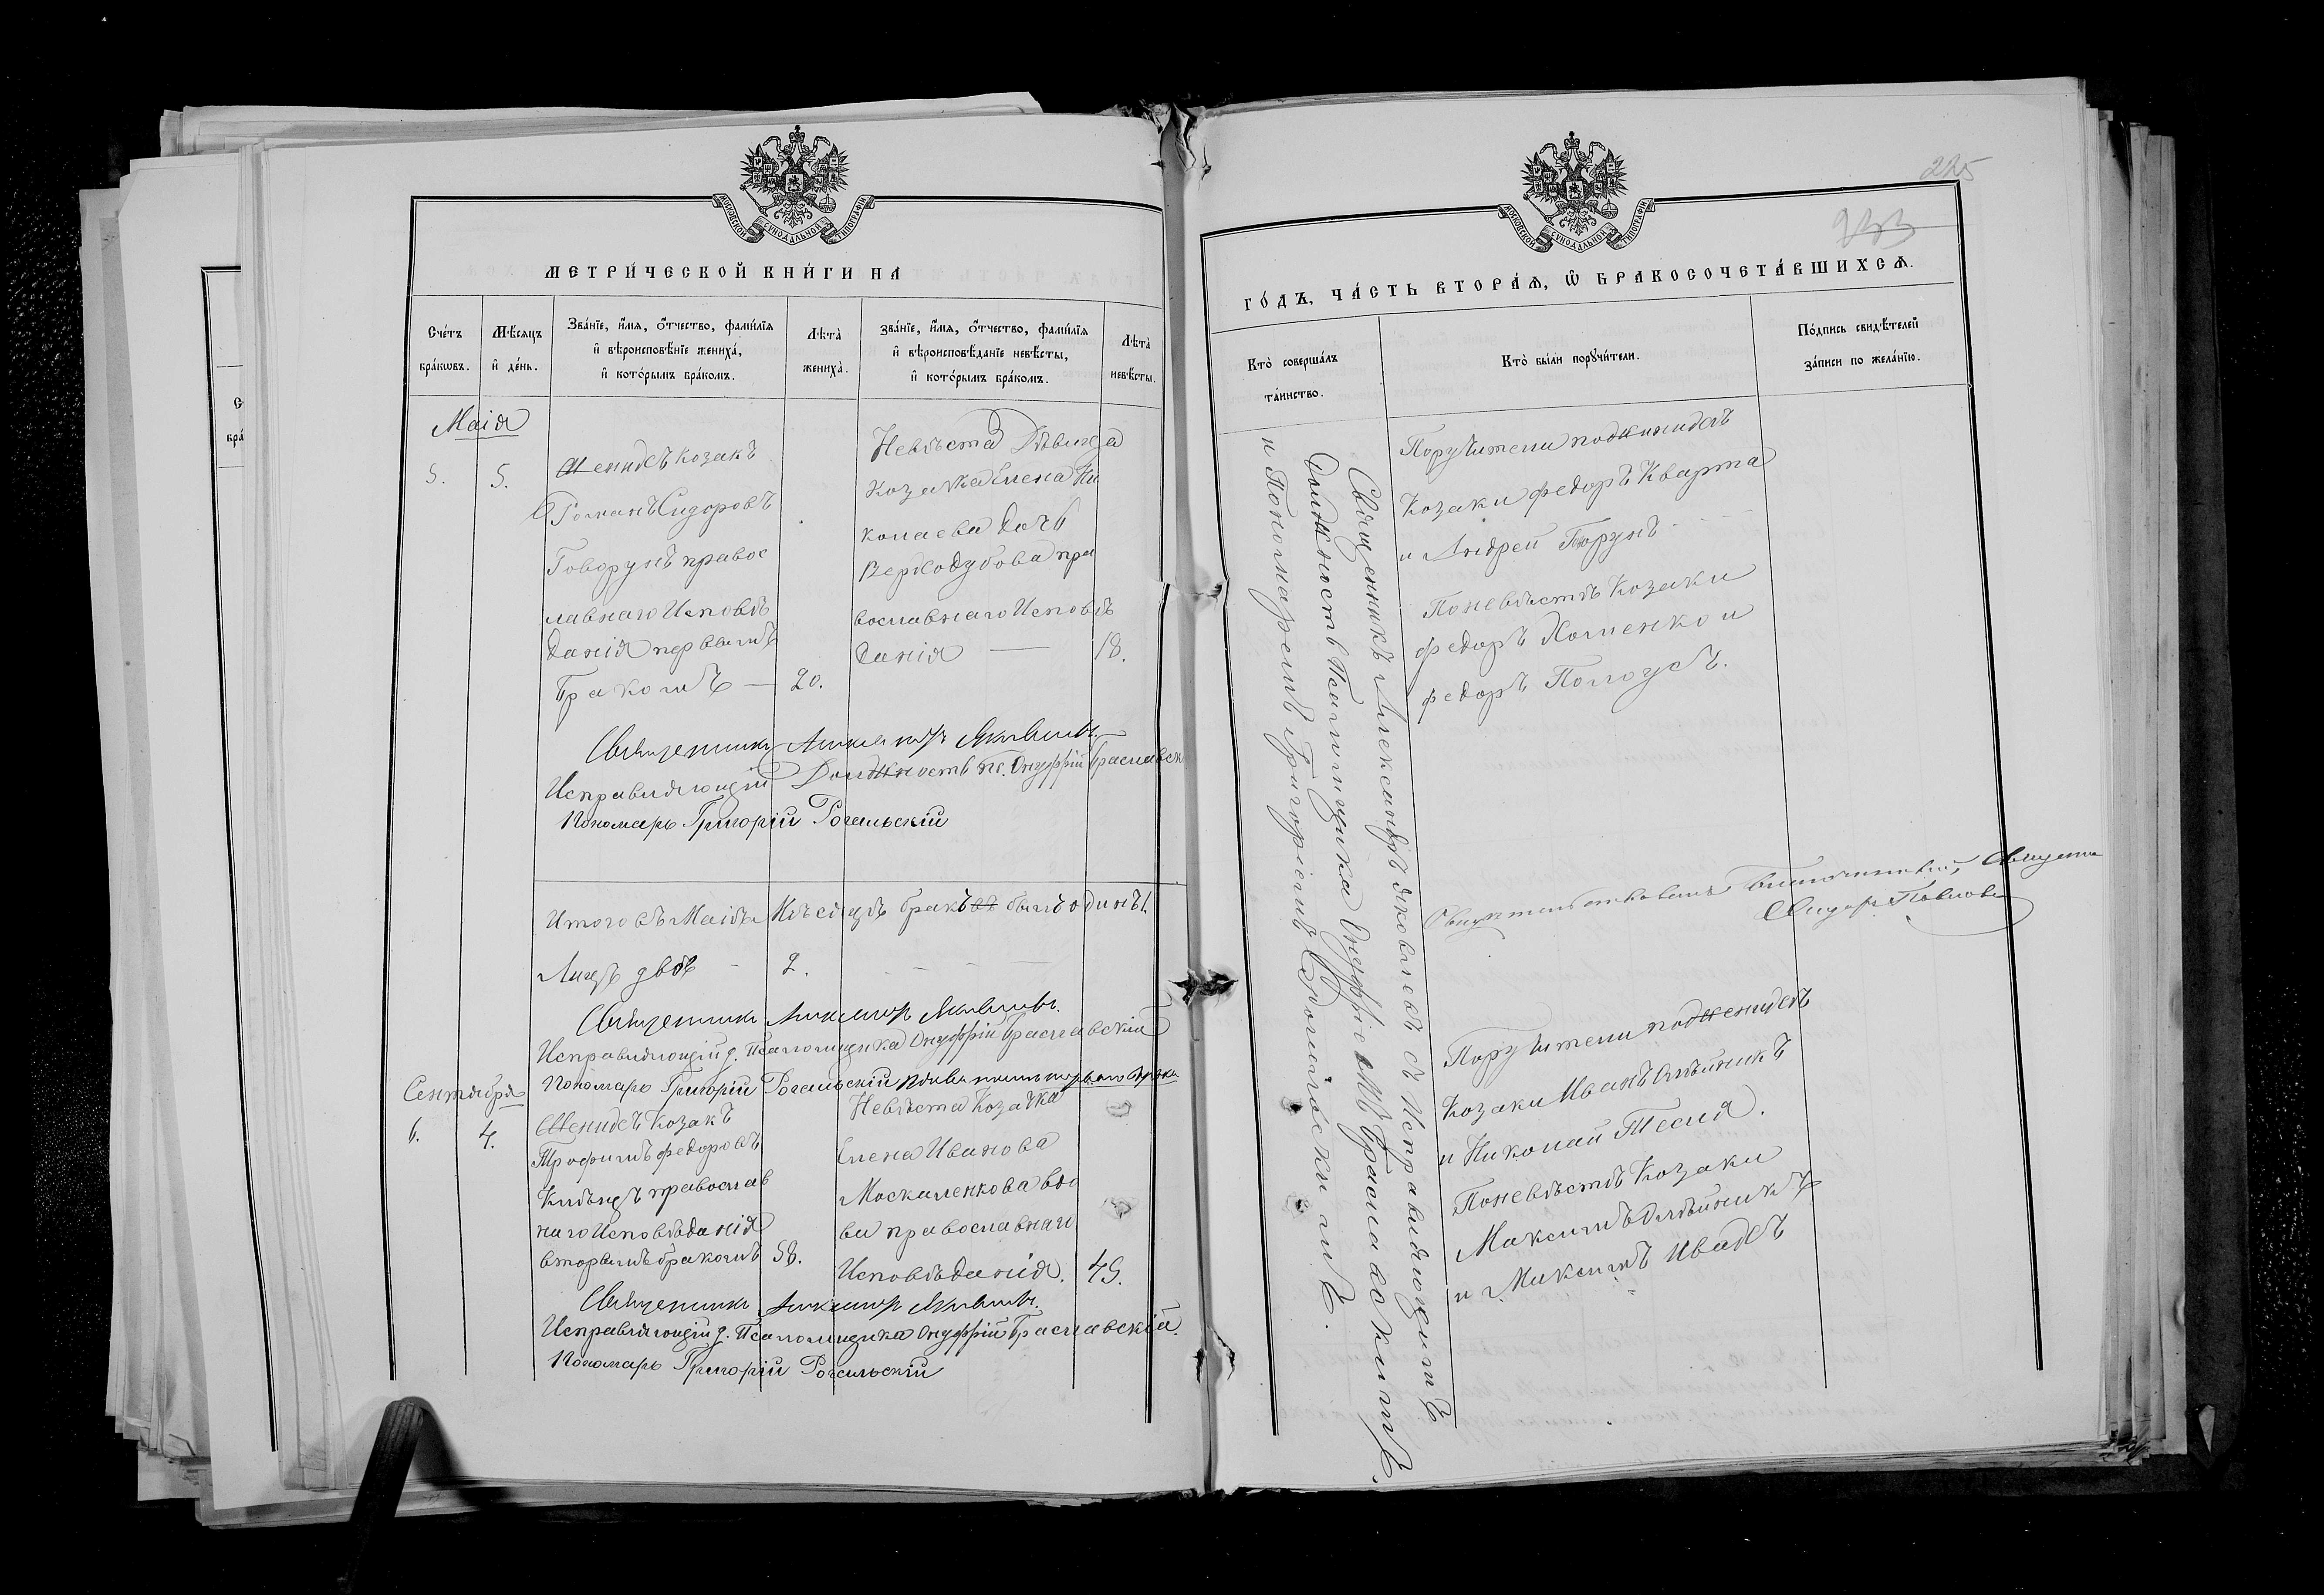 МОСКОВСКОЙ СѴНОДАЛЬНОЙ ТИПОГРАФІИ
МЕТРИ́ЧЕСКОЙ КНИ́ГИ НА
Сче́тъ бра́кωвъ.
Мѣ́сяцъ и де́нь.
Зва́нїе, и́мя, о́тчество, фами́лїя
и вѣроисповѣ́нїе жениха̀,
и кото́рымъ бра́комъ.
Лѣта̀ жениха̀.
Зва́нїе, и́мя, о́тчество, фами́лїя
и вѣроисповѣ́данїе невѣ́сты,
и кото́рымъ бра́комъ.
Лѣта̀ невѣ́сты.
Маія
5.
5.
Женихъ Козакъ
Романъ Сидоровъ
Говорунъ правос
лавнаго Исповѣ
данія первымъ
бракомъ —
20.
Невѣста Дѣвица
Козачка Елена Ни
колаева дочь
Верходубова пра
вославнаго Исповѣ
данія —
18.
Священникъ Александръ Яковлевъ.
Исправляющій Должность Пс. Онуфрій Браславскі
Пономарь Григорій Рогальскій
Итого въ Маіѣ Мѣсяцѣ бракъ былъ одинъ 1.
Лицъ двое — 2.
Священникъ Александръ Яковлевъ.
Исправляющій д. Псаломщика Онуфрій Браславскій
Пономарь Григорій Рогальскій
Сентября
6.
4.
Женихъ Козакъ
Трофимъ Федоровъ
православ
наго Исповѣданія
вторымъ бракомъ
58.
Невѣста Козачка
Елена Иванова
Москаленкова вдо
ва православнаго
Исповѣданія.
49.
Священникъ Александръ Яковлевъ.
Исправляющій д. Псаломщика Онуфрій Браславскій.
Пономарь Григорій Рогальскій
225
МОСКОВСКОЙ СѴНОДАЛЬНОЙ ТИПОГРАФІИ
ГО́ДЪ, ЧА́СТЬ ВТОРА́Я, Ѿ БРАКОСОЧЕТА́ВШИХСЯ.
Кто̀ соверша́лъ
та́инство.
Кто̀ бы́ли порꙋчи́тели.
По́дпись свидѣ́телей
за́писи по жела́нїю.
Священникъ Александръ Яковлевъ съ Исправляющимъ
Должность Псаломщика Онуфріемъ Браславскимъ.
и Пономаремъ Григоріемъ Рогальскимъ.
Поручители по женихѣ
Козаки Федоръ Кварта
и Андрей
По невѣстѣ Козаки
Федоръ Хоменко и
Федоръ
Свидѣтельствовалъ Благочинный, Священни
Сидоръ Павлов
Поручители по женихѣ
Козаки Иванъ Олѣйникъ
и Николай Тесля.
По невѣстѣ Козаки
Максимъ Олѣйникъ
и Максимъ Ивахъ